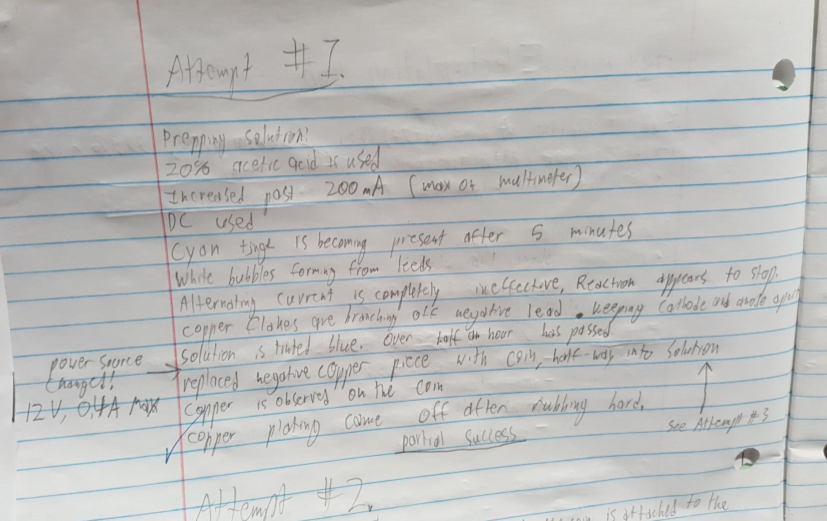 Attempt #1
Prepping solution:
20% acetic acid is used
Increased past 200mA (max of multimeter)
DC used
Cyan tinge is becoming present after 5 minutes
White bubbles forming from leeds
Alternating current is completely ineffective, Reaction appears to stop.
copper flakes are branching off negative lead. keeping cathode and anode apart
solution is tinted blue. Over half an hour has passed
replaced negative copper piece with coin, half-way into solution
copper is observed on the coin
copper plating came off after rubbing hard.
partial success
power source
changed!
12 V, 0,4A max
see Attempt #3
Attempt #2
is attached to the